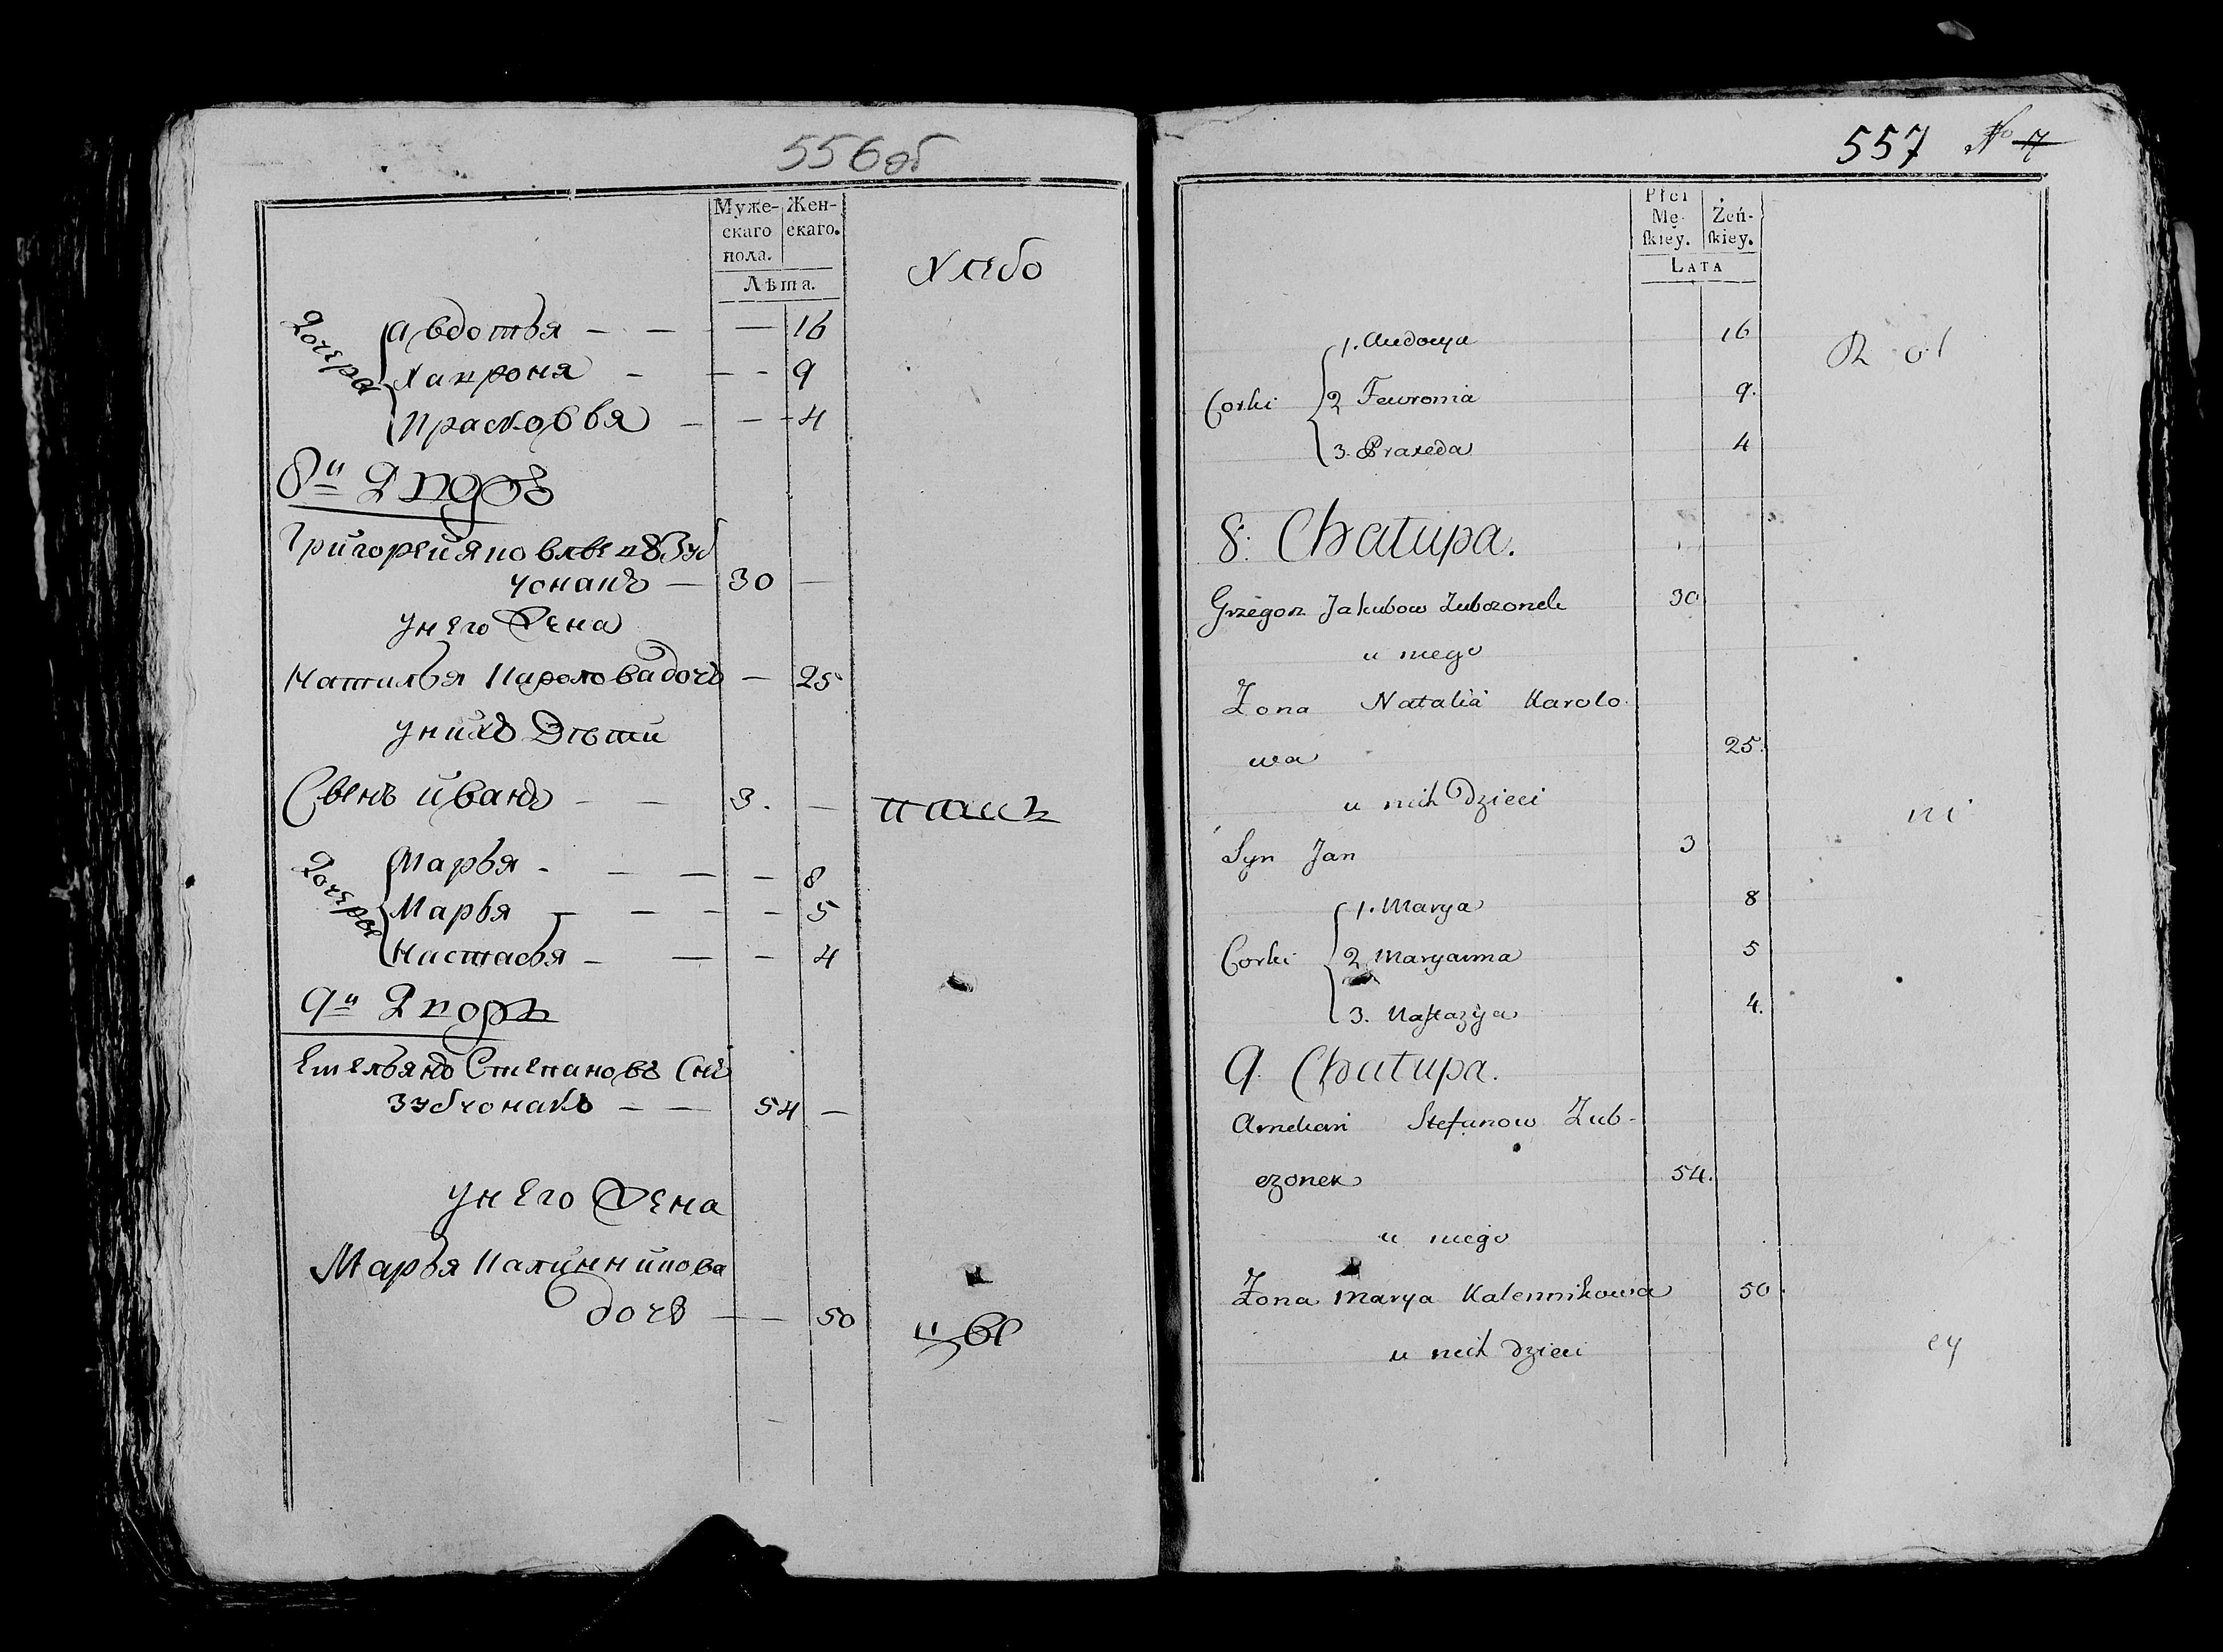 556об
Муже-
скаго
пола.
Жен-
скаго.
Лѣта.
Хлѣбо
Дочеры
Авдотья — — — 16
Хапроня — — - 9
Прасковья — — - 4
8й Дворъ
Григорей Яковлевъ Зуб
чонакъ — 30 —
унего Жена
Наталья Каролова дочь — 25
унихъ Дѣти
Сынъ Иванъ — — 3. —
пашъ
Дочеры
Марья - — — — 8
Марья — — — - 5
Настасья — — - 4
9й Дворъ
Емельянъ Степановъ Снъ
Зубчонакъ — — 54 —
унего Жена
Марья Калинникова
дочь — — 50
557 No 7
Płci
Mę-
ſkiey.
Żeń-
ſkiey.
LATA
Corki
1. Audocya 16
2 Fewronia 9.
3. Praxeda 4
R ol
8. Chałupa.
Grzegorz Jakubow Zubczonek 30
u niego
Żona Natalia Karolo-
wa 25.
u nich Dzieci
ni
Syn Jan 3
Corki
1. Marya 8
2 Maryanna 5
3. Nastazya 4.
9. Chałupa.
Amelian Stefanow Zub-
czonek 54.
u niego
Żona Marya Kalennikowa 50.
u nich dzieci
cy